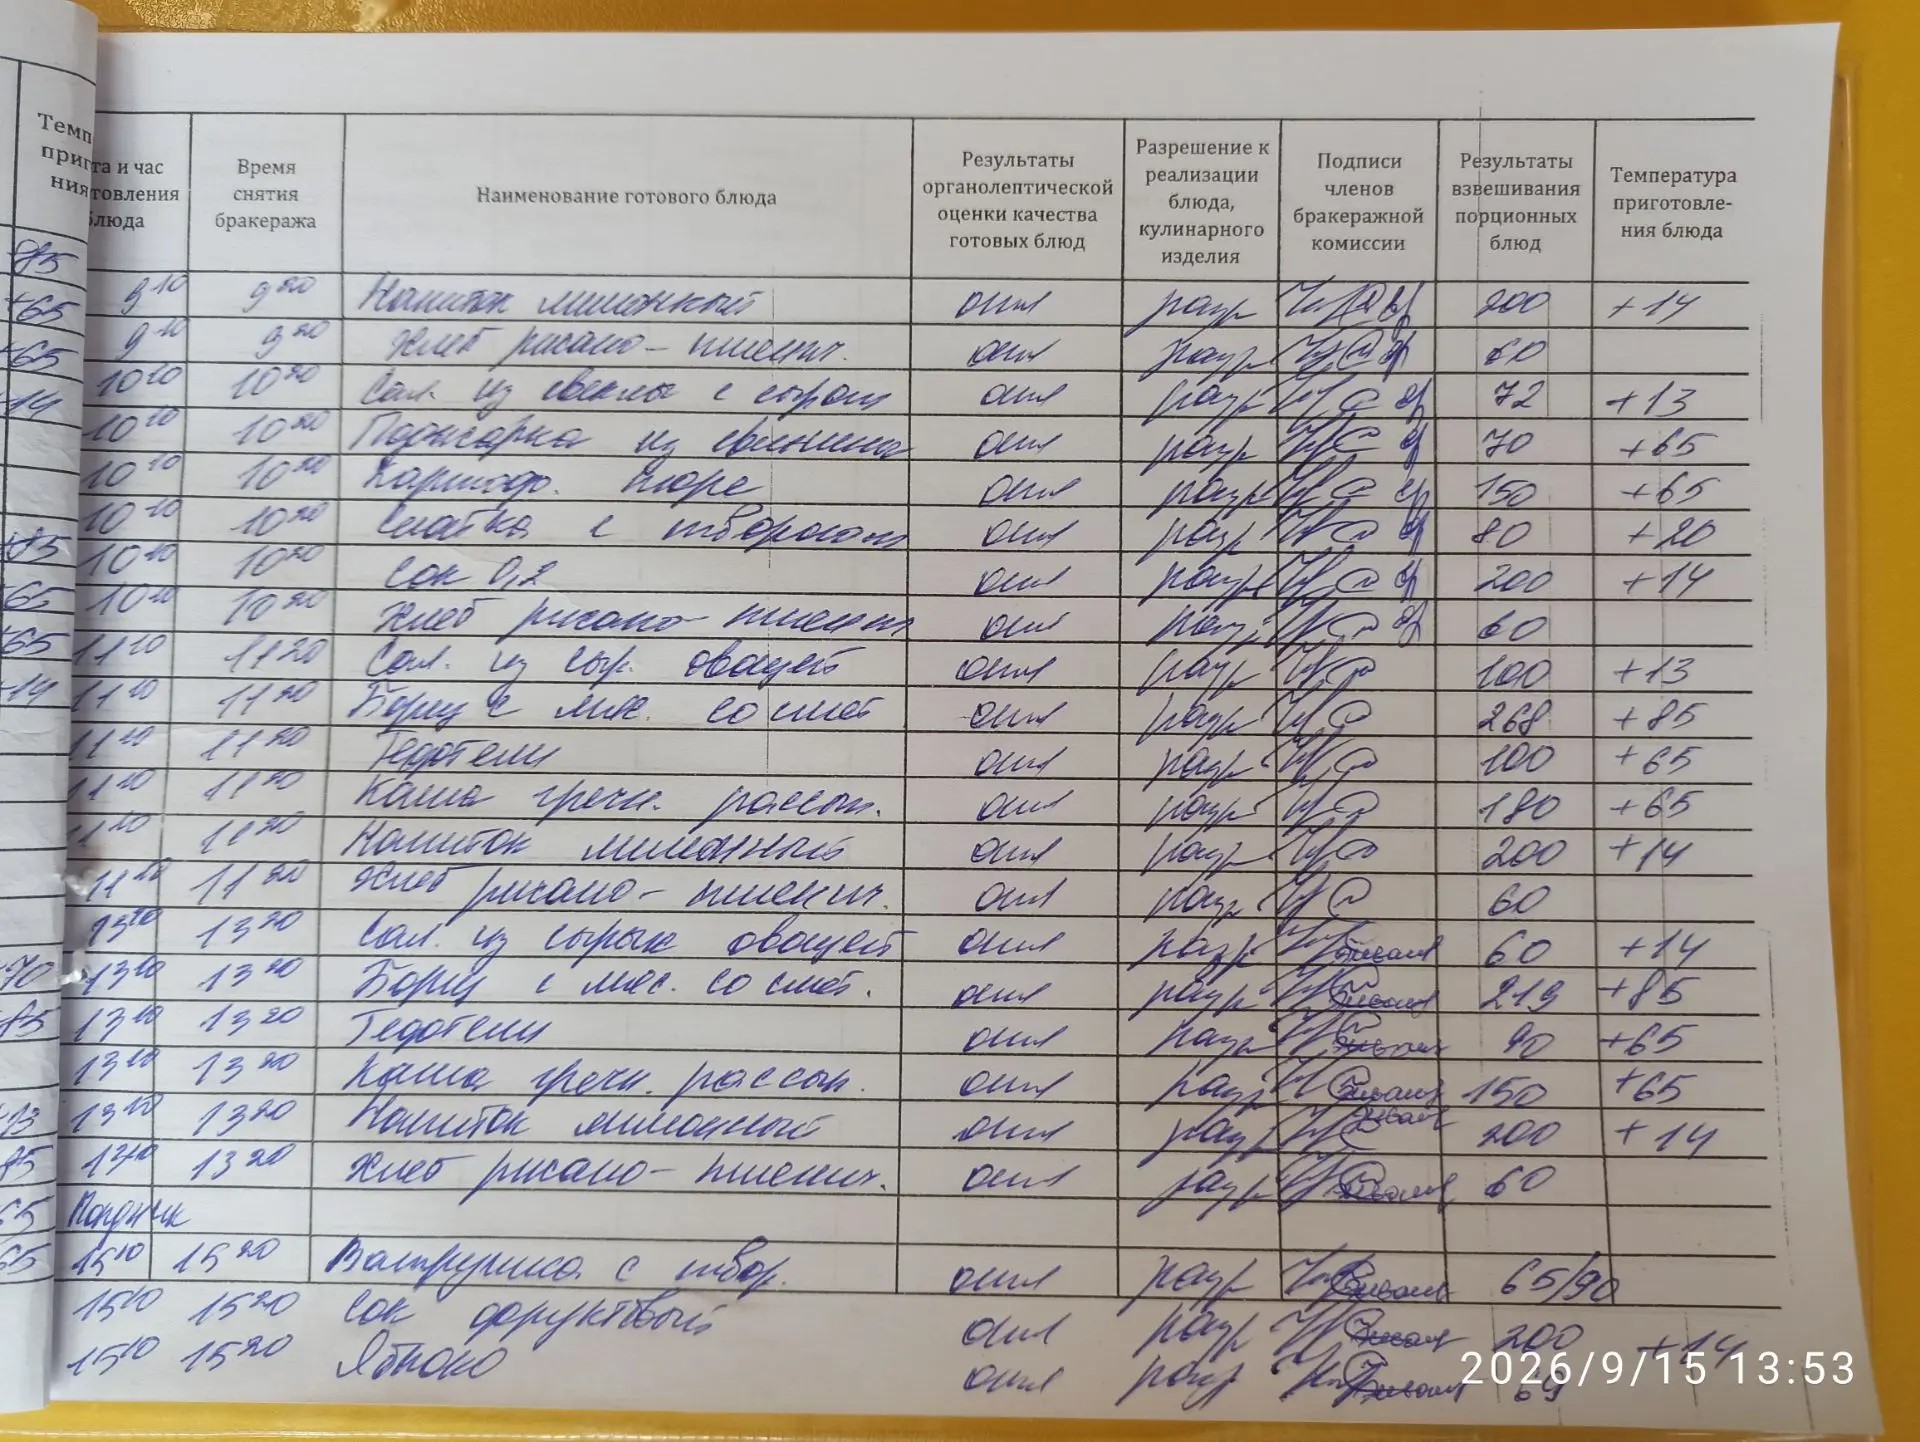 Темп
приг
ния
та и час
товления
блюда
Время
снятия
бракеража
Наименование готового блюда
Результаты
органолептической
оценки качества
готовых блюд
Разрешение к
реализации
блюда,
кулинарного
изделия
Подписи
членов
бракеражной
комиссии
Результаты
взвешивания
порционных
блюд
Температура
приготовле-
ния блюда
9 10 9 20 Напиток лимонный отл разр 200 +14
9 10 9 20 Хлеб ржано-пшенич. отл разр 60
10 10 10 20 Сал. из свеклы с сыром отл разр 72 +13
10 10 10 20 Поджарка из свинины отл разр 70 +65
10 10 10 20 Картоф. пюре отл разр 150 +65
10 10 10 20 с творогом отл разр 80 +20
10 10 10 20 Сок 0,2 отл разр 200 +14
10 10 10 20 Хлеб ржано-пшенич отл разр 60
11 10 11 20 Сал. из сыр. овощей отл разр 100 +13
11 10 11 20 Борщ с мяс. со смет отл разр 268 +85
11 10 11 20 Тефтели отл разр 100 +65
11 10 11 20 Каша гречн. рассып. отл разр 180 +65
11 10 11 20 Напиток лимонный отл разр 200 +14
11 10 11 20 Хлеб ржано-пшенич. отл разр 60
13 10 13 20 Сал. из сырых овощей отл разр 60 +14
13 10 13 20 Борщ с мяс. со смет. отл разр 219 +85
13 10 13 20 Тефтели отл разр 90 +65
13 10 13 20 Каша гречн. рассып. отл разр 150 +65
13 10 13 20 Напиток лимонный отл разр 200 +14
13 10 13 20 Хлеб ржано-пшенич. отл разр 60
Полдник
15 10 15 20 Ватрушка с твор. отл разр 65/90
15 10 15 20 Сок фруктовый отл разр 200 +14
15 10 15 20 Яблоко отл разр 69
2026/9/15 13:53